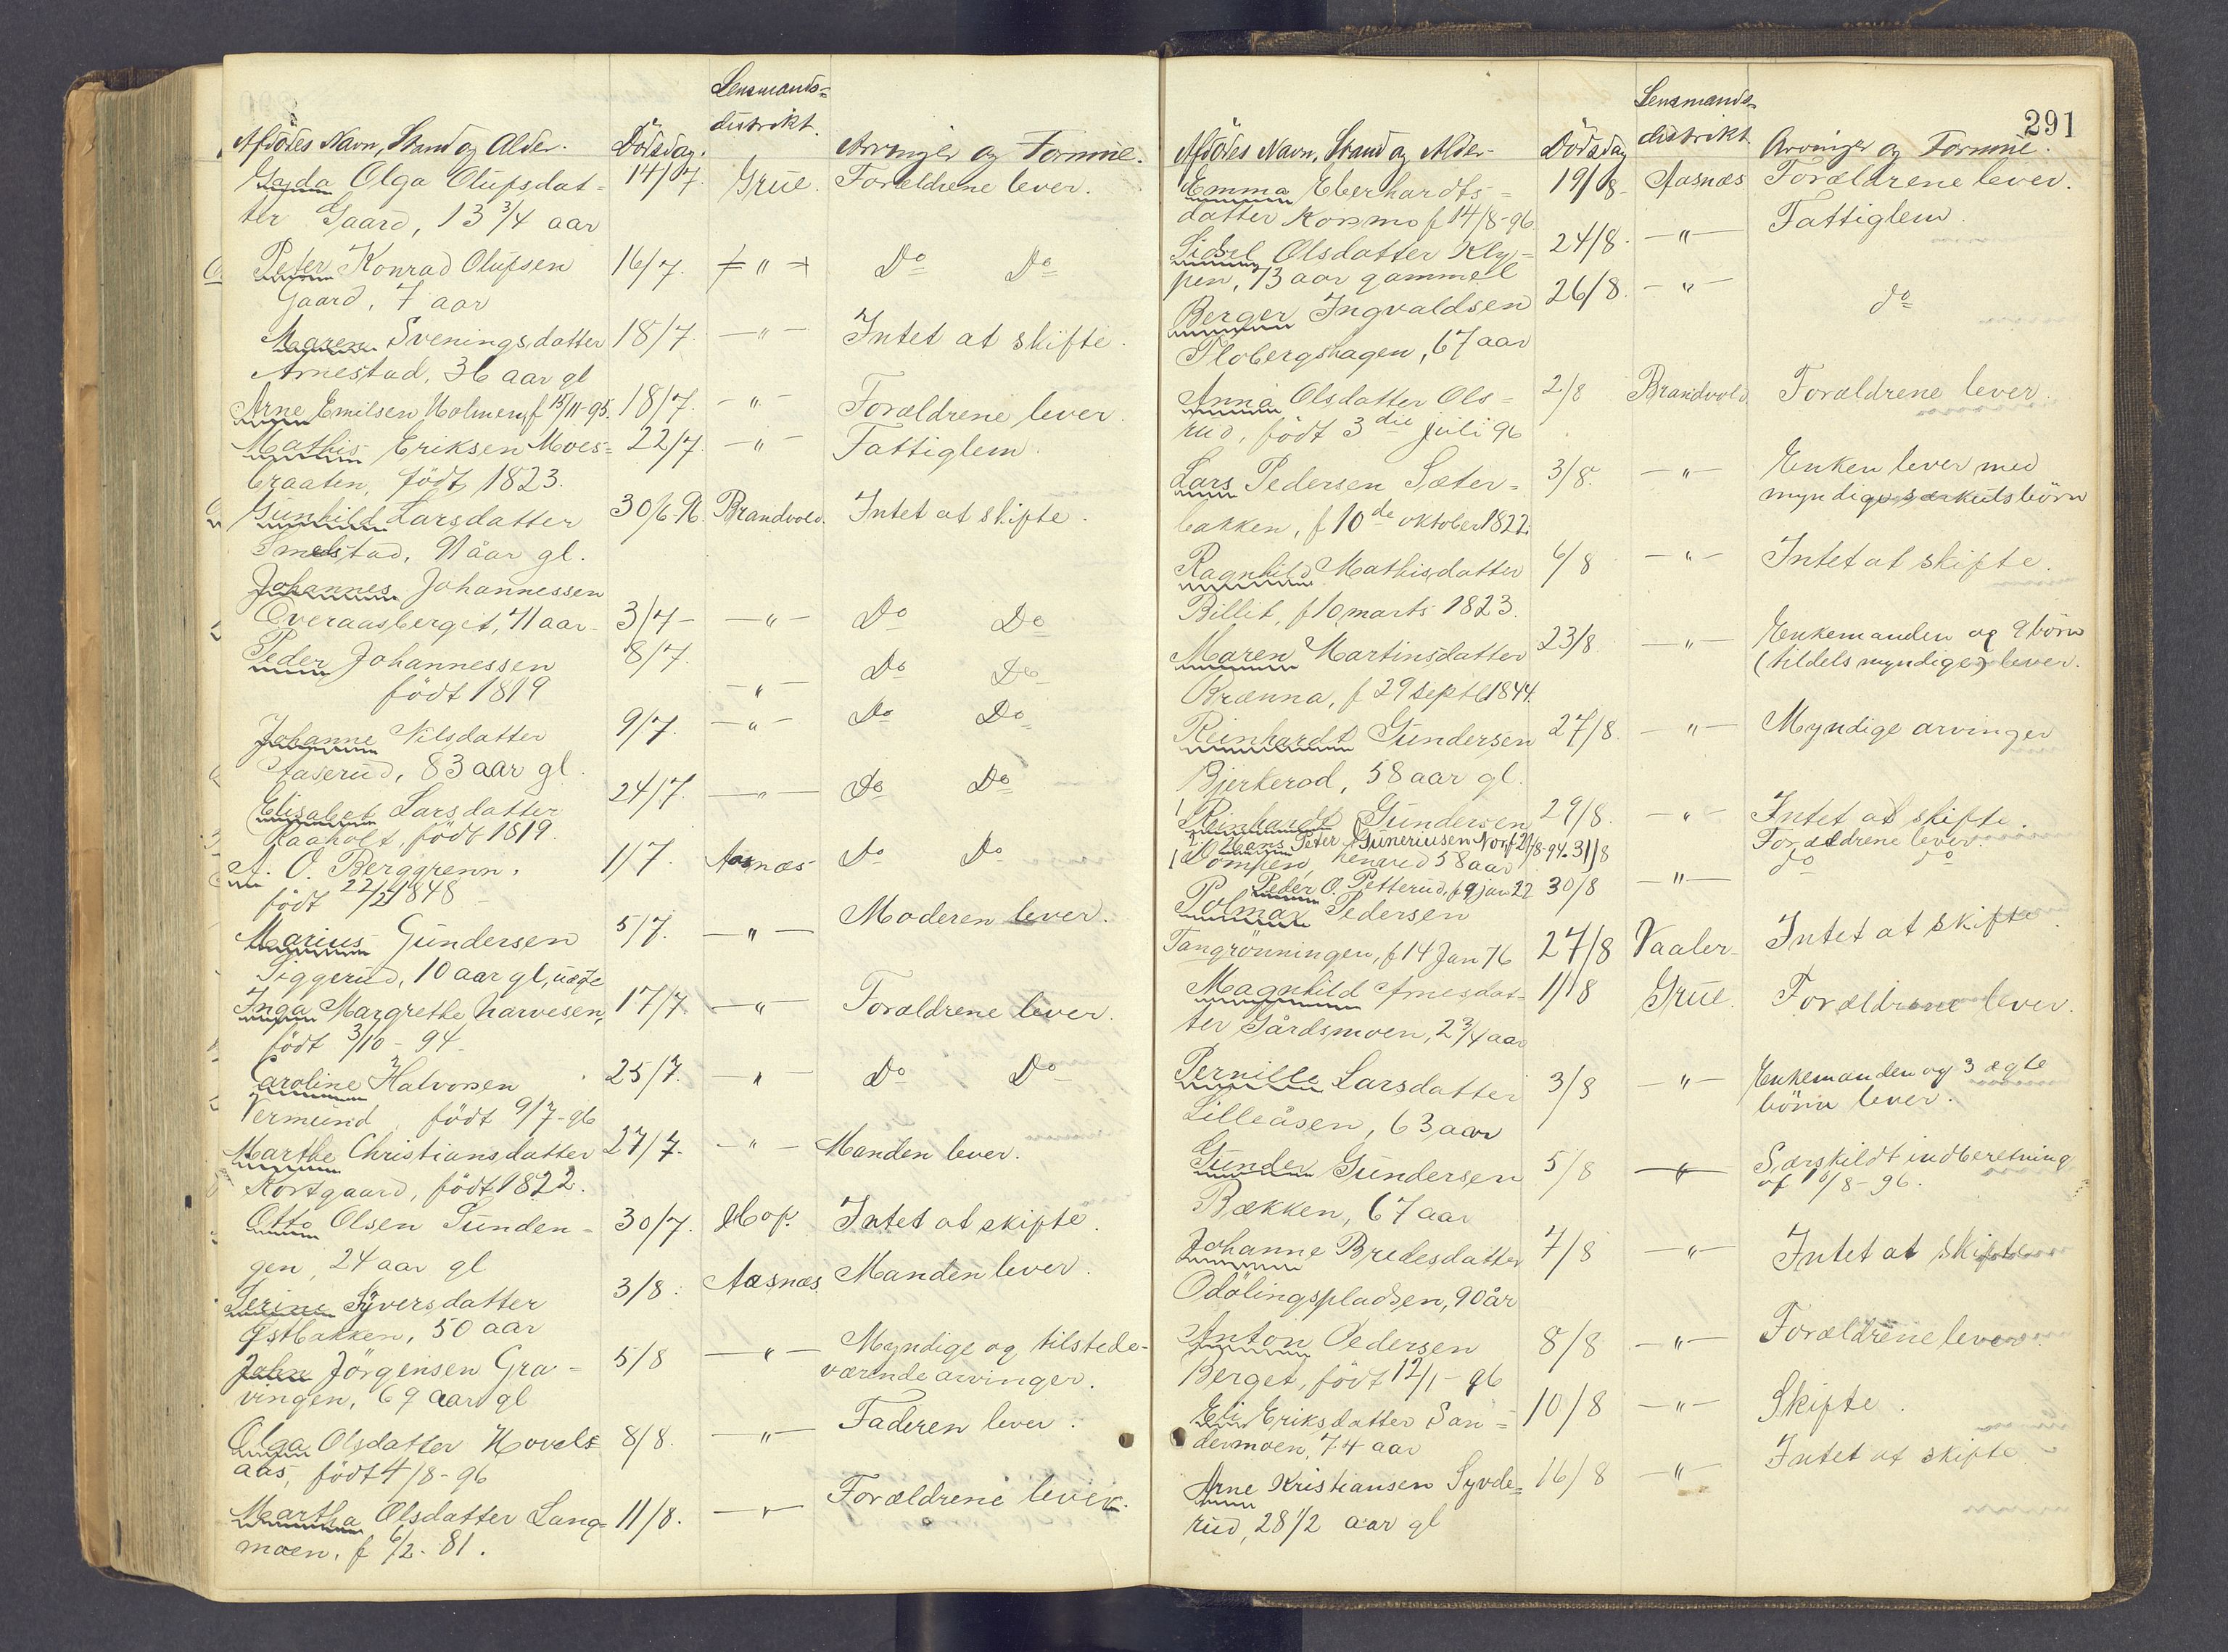 Lensmands=
distrikt.
Afdödes Navn, Stand og Alder. Dödsdag. Arvinger og Formue.
Gyda Olga Olufsdat= 14/7. Grue. Forældrene lever.
ter Gaard, 13 3/4 aar
Peter Konrad Olufsen 16/7. — " — Do Do
Gaard, 7 aar
Maren Sveningsdatter 18/7. — " — Intet at skifte.
Arnestad, 36 aar gl
Arne Emilsen Holmen, f 15/11-95. 18/7. — " — Forældrene lever
Mathis Eriksen Moes= 22/7. — " — Fattiglem.
braaten, født 1823.
Gunhild Larsdatter 30/6-96. Brandvold. Intet at skifte.
Smedstad, 91 aar gl.
Johannes Johannessen
Overaasberget, 71 aar - 3/7 - — " — Do Do
Peder Johannessen 8/7. — " — Do Do
født 1819
Johanne Nilsdatter 9/7. — " — Do Do
Aaserud, 83 aar gl.
Elisabet Larsdatter 24/7. — " — Do Do
Raaholt, født 1819.
A. O. Berggrenn. 1/7. Aasnæs Do Do
født 22/2 1848 -
Marius Gundersen 5/7. — " — Moderen lever.
Siggerud, 10 aar gl, uægte
Inga Margrethe Narvesen, 17/7 — " — Forældrene lever.
født 3/10 - 94 -
Caroline Halvorsen 25/7. — " — Do Do
Vermund, født 9/7-96
Marthe Christiansdatter 27/7. — " — Manden lever.
Kortgaard, født 1822.
Otto Olsen Sunden= 30/7. Hof. Intet at skifte.
gen, 24 aar gl
Serine Syversdatter 3/8. Aasnæs Manden lever.
Østbakken, 50 aar
John Jörgensen Gra= 5/8 — " — Myndige og tilstede-
vingen, 69 aar gl værende arvinger.
Olga Olsdatter Hovels= 8/8. — " — Faderen lever.
aas, født 4/8-96
Martha Olsdatter Lang= 11/8. — " — Forældrene lever.
moen, f 6/2-81.
291
Lensmands=
distrikt
Afdödes Navn, Stand og Alder - Dödsdag Arvinger og Formue.
Emma Eberhardts= 19/8 - Aasnæs Forældrene lever.
datter Kosmo f 14/8-96
Sidsel Olsdatter Kly= 24/8. — " — Fattiglem.
pen, 73 aar gammel
Berger Ingvaldsen 26/8. — " — do
Flobergshagen, 67 aar
Anna Olsdatter Ols= 2/8 Brandvold Forældrene lever.
rud, født 3die juli 96
Lars Pedersen Sæter= 3/8. — " — Enken lever med
bakken, f 10de oktober 1822. myndige særkulsbörn
Ragnhild Mathisdatter 6/8 — " — Intet at skifte.
Billit, f 10 marts 1823.
Maren Martinsdatter 23/8. — " — Enkemanden og 9 börn
Brænna, f 29 septb 1844. (tildels myndige) lever.
Reinhardt Gundersen 27/8. — " — Myndige arvinger
Bjerkerod, 58 aar gl.
1 Reinhardt Gundersen 29/8. — " — Intet at skifte
2. Hans Peter Guneriusen Nor f 21/8-94. 31/8 Forældrene lever.
1 Dompen, henved 58 aar do do
Peder O. Petterud, f 9 jan 22 30/8 — " —
Polmar Pedersen
Tangrönningen, f 14 Jan 76 27/8 Vaaler - Intet at skifte.
Magnhild Arnesdat= 1/8 Grue. Forældrene lever.
ter Gårdsmoen, 2 3/4 aar
Pernille Larsdatter 3/8 " — Enkemanden og 3 ægte
Lilleåsen, 63 aar börn lever.
Gunder Gundersen 5/8 — " — Særskildt indberetning
Bækken, 67 aar af 10/8-96.
Johanne Bredesdatter 7/8 — " — Intet at skifte
Odölingspladsen, 90 år
Anton Pedersen 8/8 — " — Forældrene lever.
Berget, født 12/1-96
Eli Eriksdatter San= 10/8 — " — Skifte.
dermoen, 74 aar
Arne Kristiansen Syvde= 16/8 — " — Intet at skifte.
rud, 28 1/2 aar gl